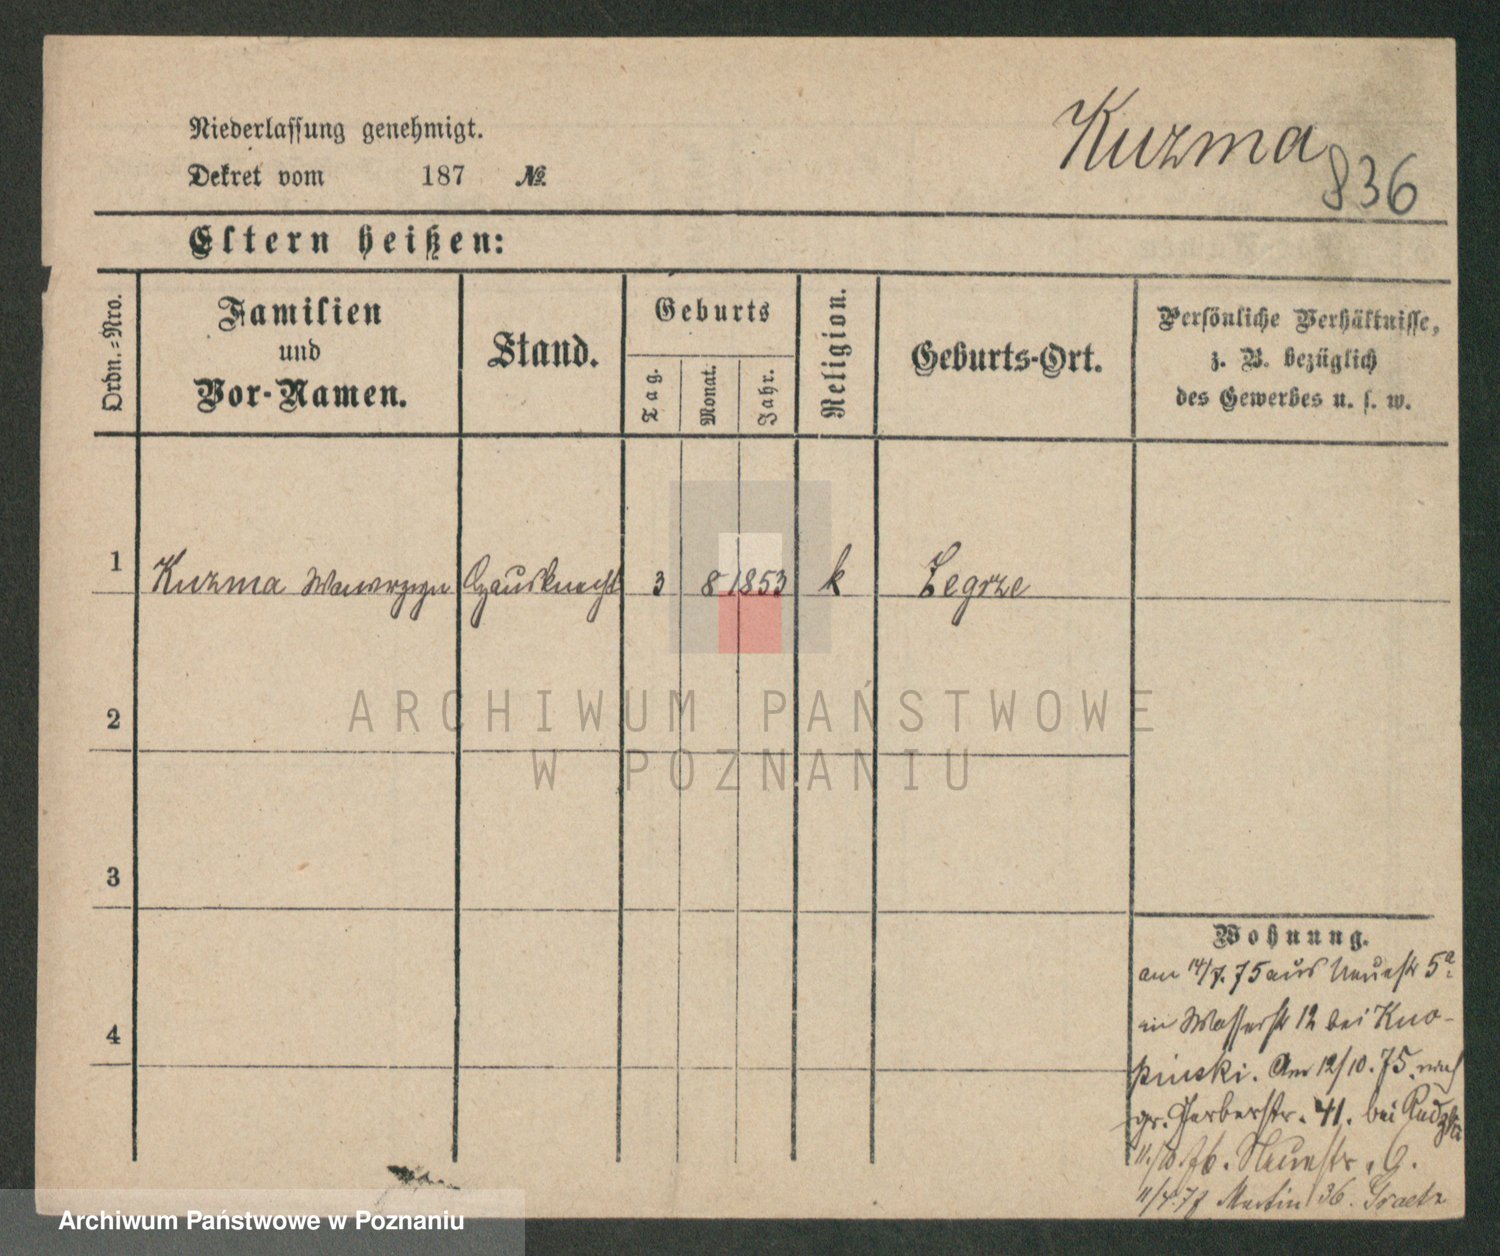 Niederlassung genehmigt.
Dekret vom 187 №.
Kuzma
836
Eltern heißen:
Ordn.-Nro.
Familien
und
Vor-Namen.
Stand.
Geburts
Tag.
Monat.
Jahr.
Religion.
Geburts-Ort.
Persönliche Verhältnisse,
z. B. bezüglich
des Gewerbes u. s. w.
1 Kuzma Wawrzyn Hausknecht 3 8 1853 k Zegrze
2
3
4
ARCHIWUM PAŃSTWOWE
W POZNANIU
Wohnung.
am 14/7. 75 aus Neuestr 5a.
in Wasserstr 12 bei Kno-
pinski. Am 12/10. 75. nach
gr. Gerberstr. 41. bei
11/10. 76. Neuestr. 9.
11/4. 77 Martin 36. Graetz
Archiwum Państwowe w Poznaniu